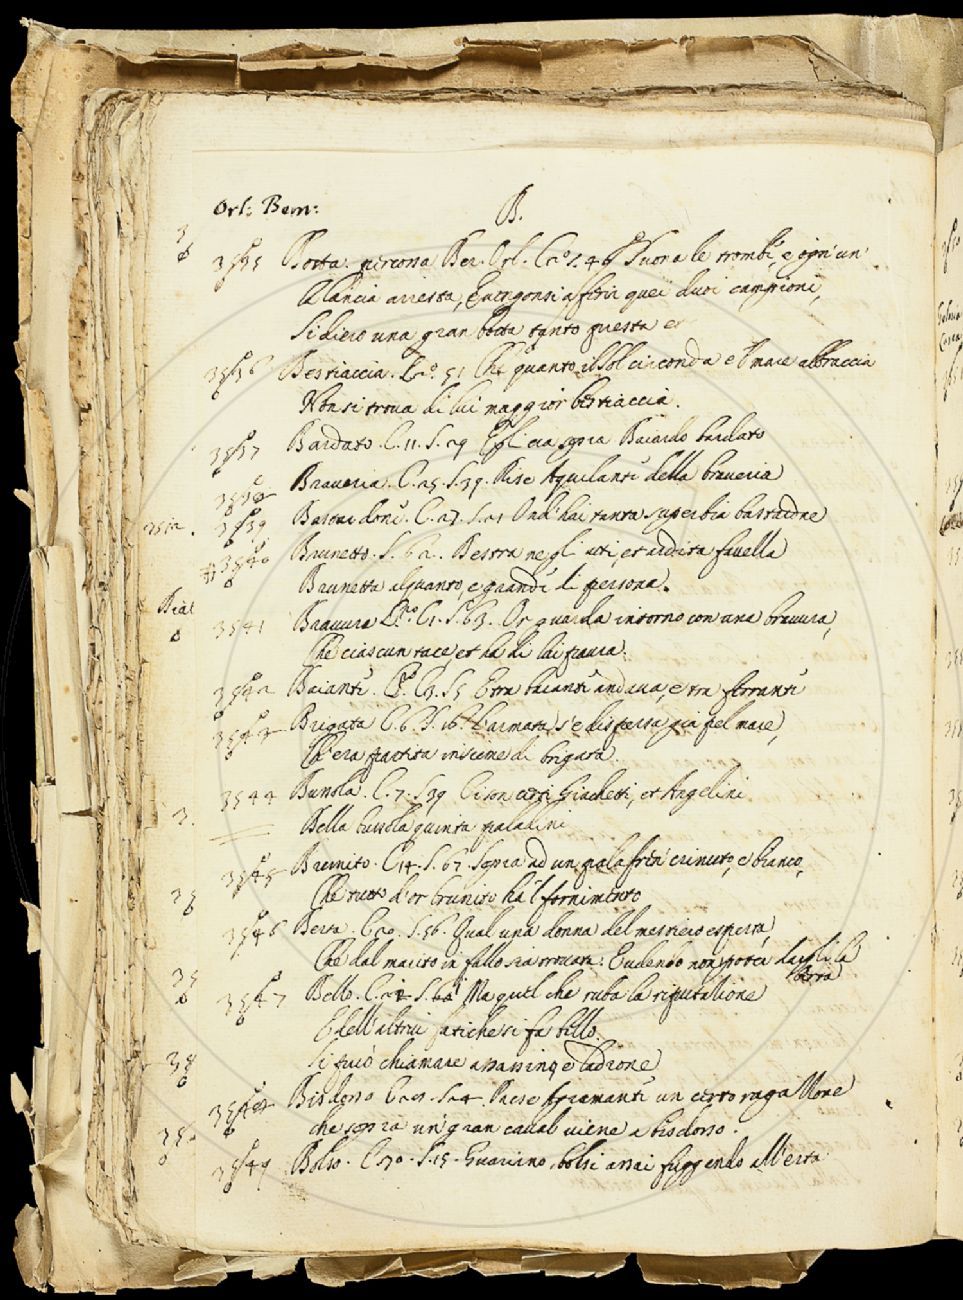 Orl: Bern:
B.
3535 Botta. percossa Ber. Orl. C. S. 46 Suona le trombe, e ogn' un
la lancia arresta, E vengonsi a ferir quei duoi campioni,
Si diero una gran botta tanto questa et
3536 Bestiaccia. 51 Che quanto il Sol circonda e 'l mare abbraccia
Non si trova di lui maggior bestiaccia.
3537 Bardato. C. 11. S. 29 Egli era sopra Baiardo bardato
3538 Braveria. C. 25. S. 39. Rise Aquilante della braveria
3539 Bastardone. C. 27. S. 21 Ond' hai tanta superbia bastardone
3540 Brunetto. S. 62. Destra negl' atti, et ardita favella
Brunetta alquanto, e grande di persona.
3541 Bravura C. 1. S. 63. Or guarda intorno con una bravura,
Che ciascun tace et ha di lui paura.
3542 Baiante. C. 3. S. 5 E tra baiante andava, e tra ferrante
3543 Brigata C. 6. S. 16 L'armata s'è dispersa già pel mare,
Ch'era partita insieme di brigata.
3544 Bussola. C. 7. S. 39 Ci son certi Giachetti, et Angelini
Della bussola quinta paladini
3545 Brunito. C. 14. S. 67. Sopra ad un palafren crinuto, e bianco,
Che tutto d'or brunito ha 'l fornimento
3546 Berta. C. 20. S. 56. Qual una donna del mestiero esperta,
Che dal marito in fallo sia trovata: E vedendo non poter dargli la
berta
3547 Bello. C. 22 S. Ma quel che ruba la riputatione
E dell'altrui fatiche si fa bello.
Si può chiamare assassino e ladrone
3548 Bisdosso C. 28. S. 24. Paese framante un certo ragattone
che sopra un gran caval viene a bisdosso.
3549 Bolso. C. 30. S. 15. Guariano bolsi assai fuggendo all'erta